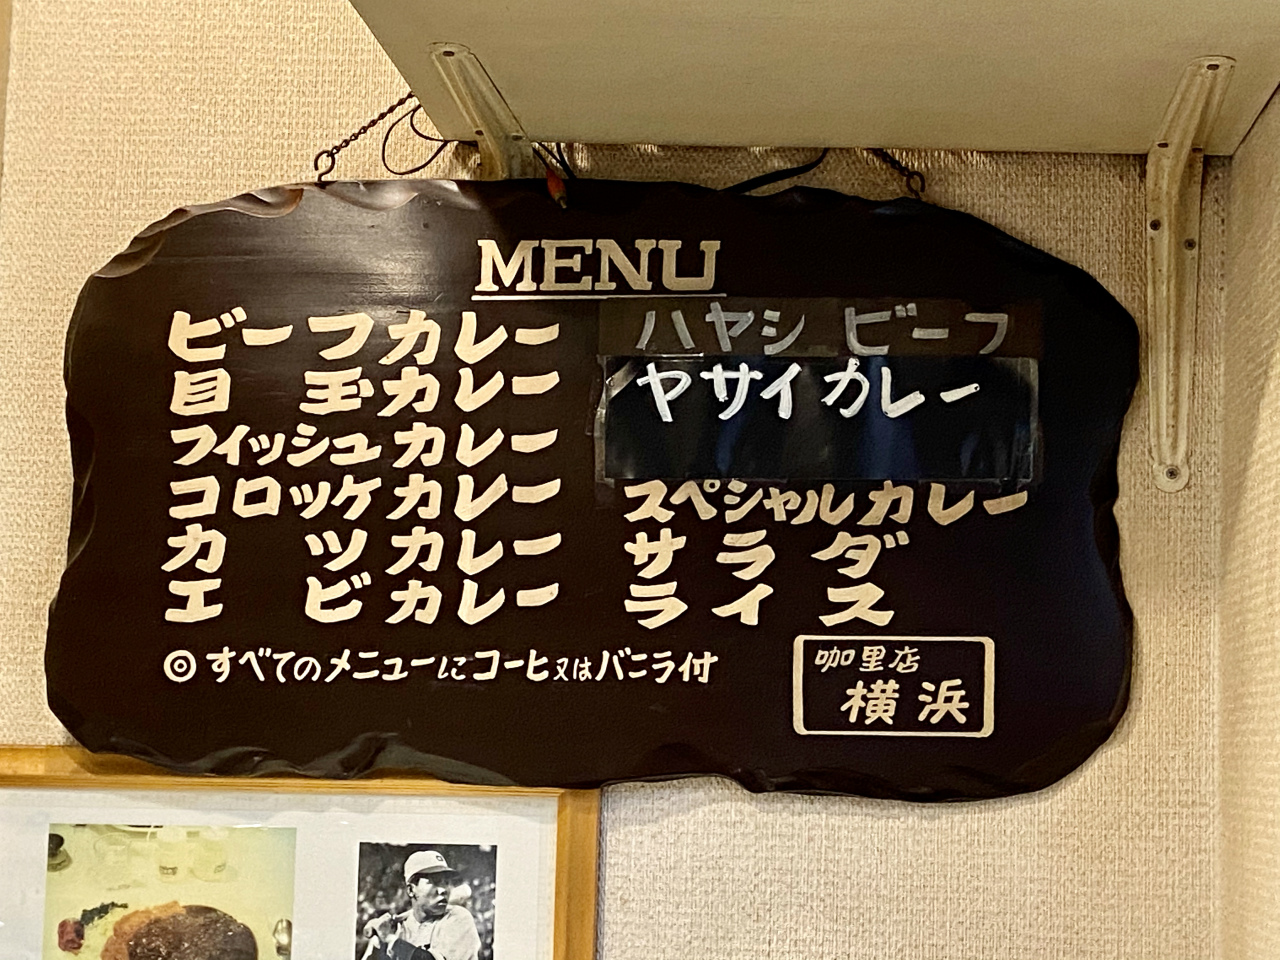 MENU
ビーフカレー
目玉カレー
フィッシュカレー
コロッケカレー
カツカレー
エビカレー
ハヤシ ビーフ
ヤサイカレー
スペシャルカレー
サラダ
ライス
◎すべてのメニューにコーヒ又はバニラ付
咖里店
横浜